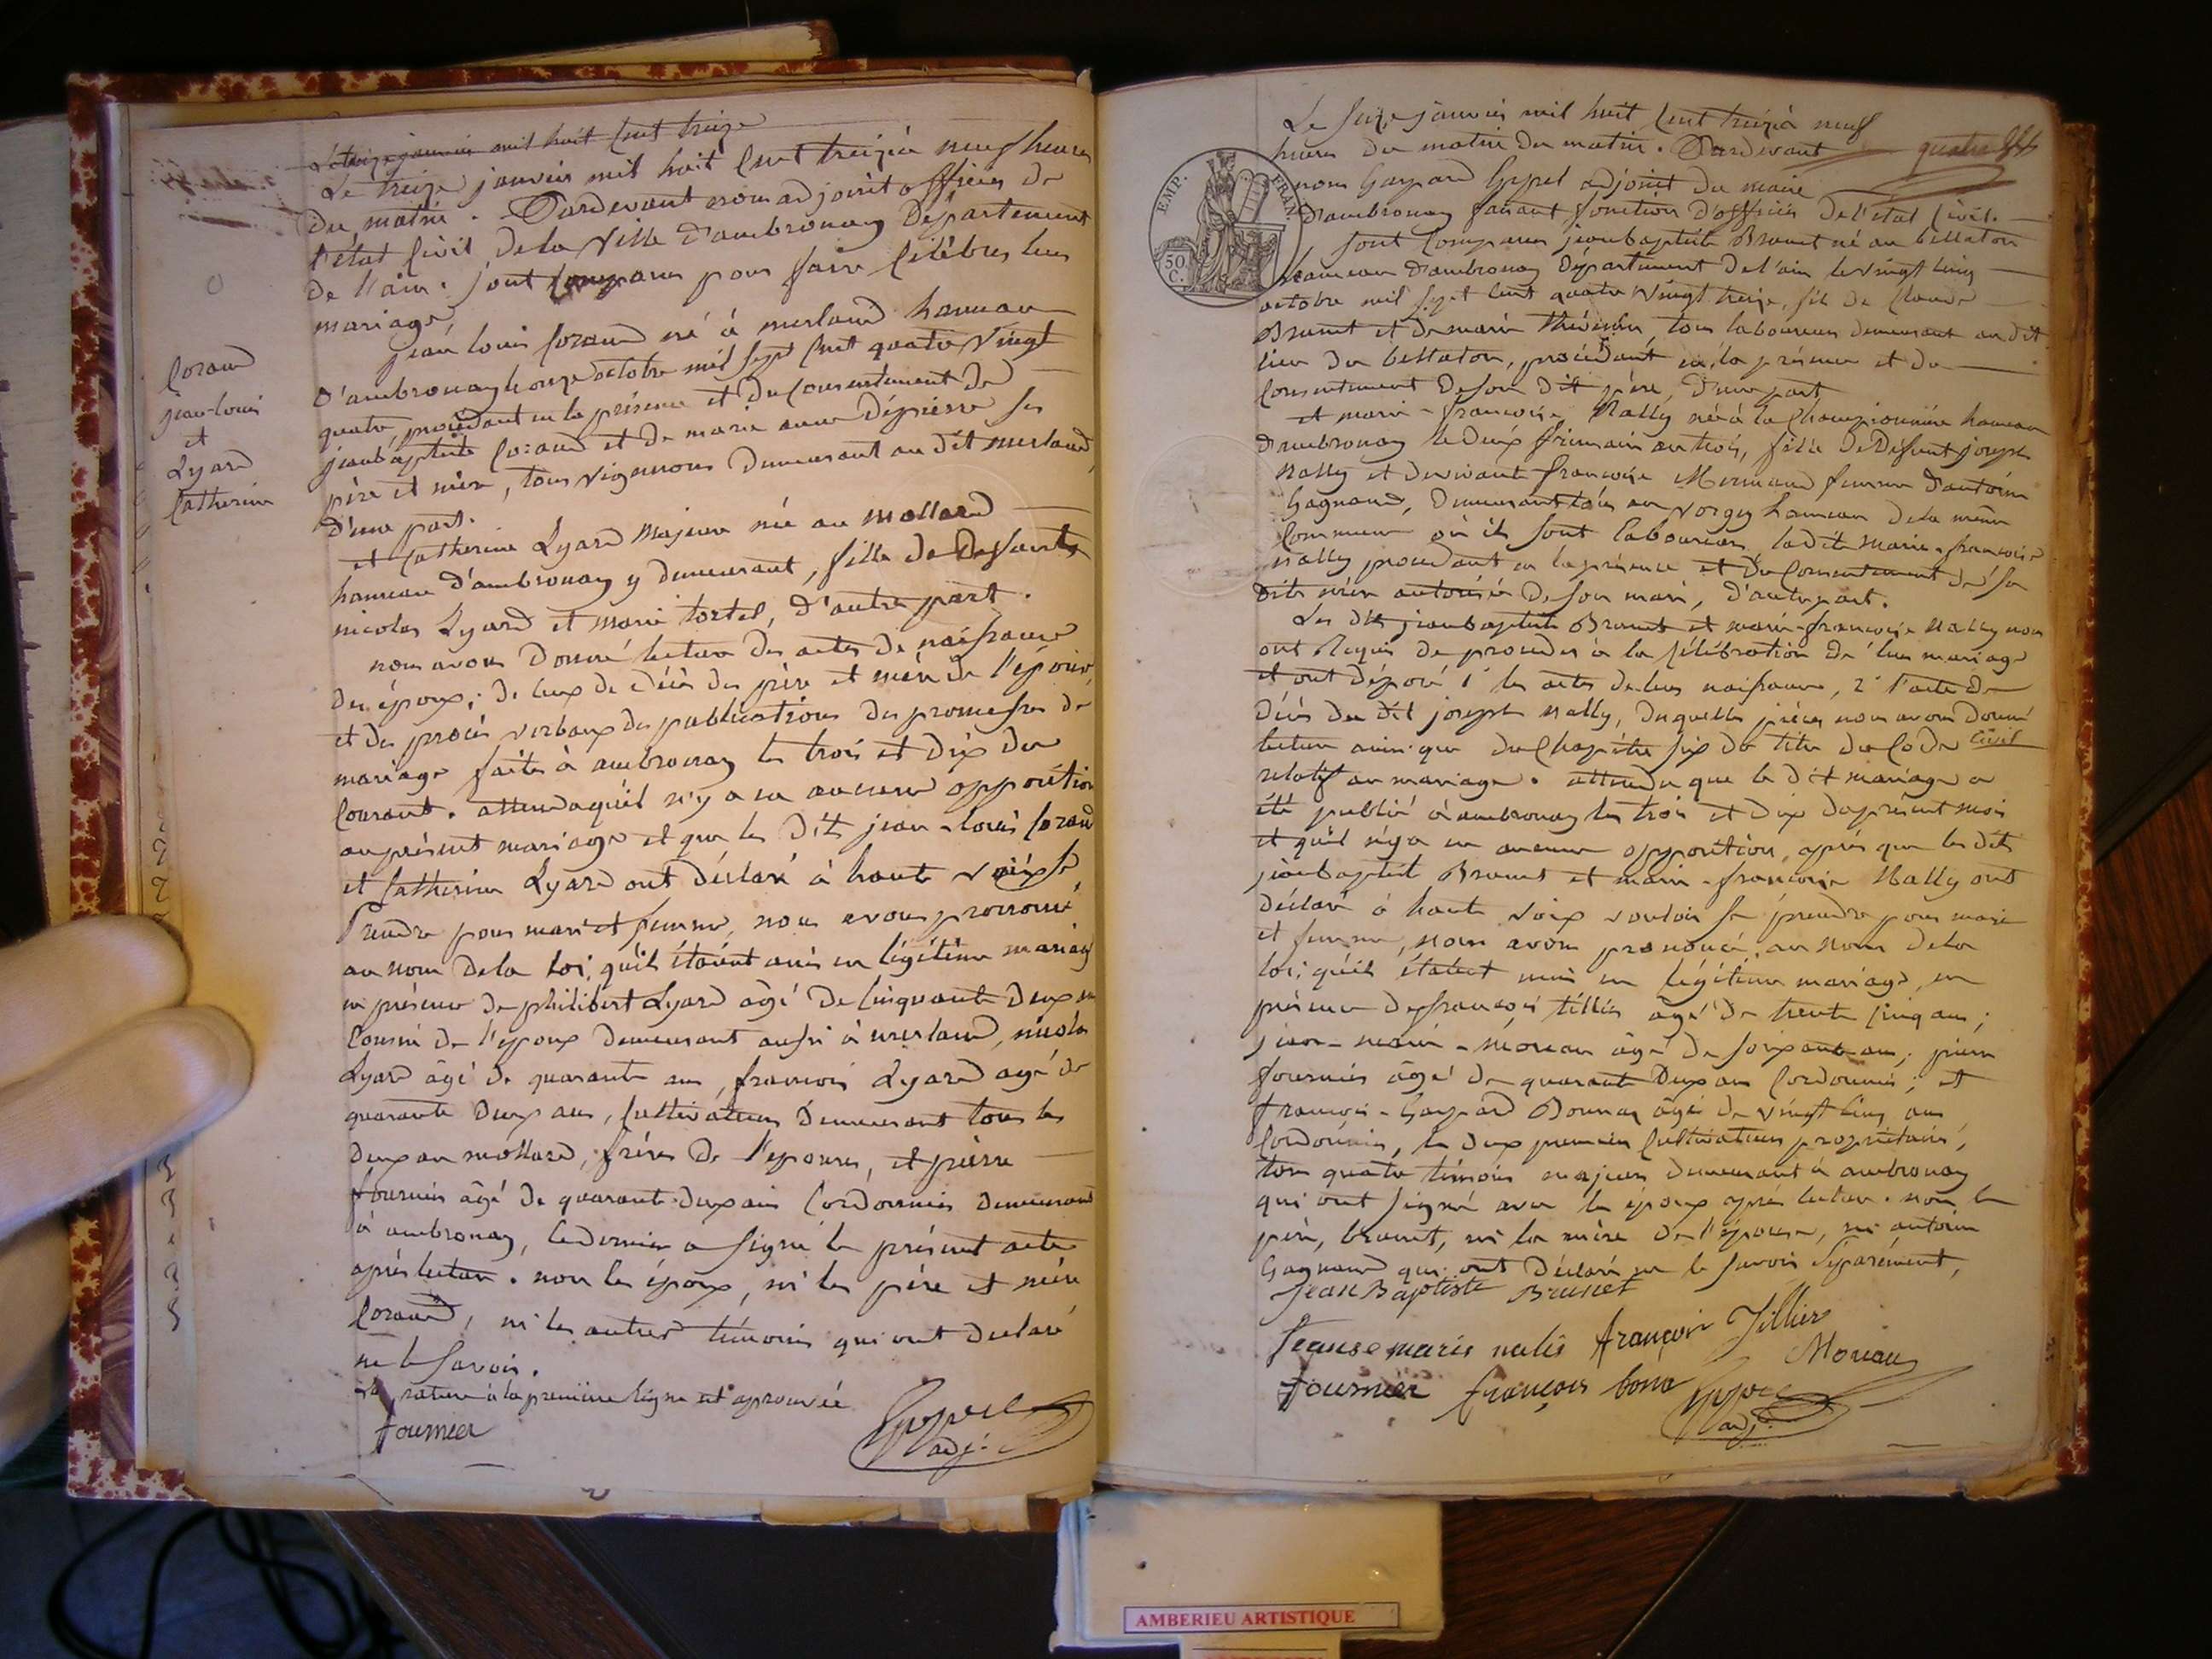 Le treize janvier mil huit cent treize
Le treize janvier mil huit cent treize à neuf heures
du matin. Pardevant nous adjoint officier de
l'état civil de la ville d'ambronay Département
de l'ain. sont comparus pour faire célébrer leur
mariage
jean louis Cozand né à merland hameau
d'ambronay le onze octobre mil sept cent quatre vingt
quatre procédant en la présence et du consentement de
jeanbaptiste Cozand et de marie anne dépierre ses
père et mère, tous vignerons demeurant au dit merland,
d'une part.
et Catherine Lyard Majeure née au mollard
hameau d'ambronay y demeurant, fille de Deffunts
nicolas Lyard et marie tortel, d'autre part.
nous avons donné lecture des actes de naissance
des époux; de ceux de décès des père et mère de l'épouse,
et des procès verbaux des publications des promesses de
mariage faites à ambronay les trois et dix du
courant. attendu qu'il n'y a eu aucune opposition
au présent mariage et que les dits jean-louis Cozand
et Catherine Lyard ont déclaré à haute voix se
Prendre pour mari et femme, nous avons prononcé
au nom de la loi, qu'ils étaient unis en légitime mariage
en présence de philibert Lyard âgé de cinquante deux ans
cousin de l'époux demeurant aussi à merland, nicolas
Lyard âgé de quarante ans, françois Lyard agé de
quarante deux ans, cultivateurs demeurant tous les
deux au mollard, frères de l'épouse, et pierre
fournier âgé de quarante deux ans Cordonnier demeurant
à ambronay, le dernier a signé le présent acte
après lecture. non les époux, ni les père et mère
Cozand, ni les autres témoins qui ont déclaré
ne le savoir.
la rature à la première ligne est aprouvée
fournier
Gyppel
adj.
Cozand
jean-louis
et
Lyard
Catherine
Le seize janvier mil huit cent treize à neuf
heures du matin du matin. Pardevant
quatre
nous Gaspard Gyppel adjoint du maire
d'ambronay faisant fonction d'officier de l'état civil.
EMP.
FRAN.
50
C.
sont comparus jeanbaptiste Brunet né au bellaton
hameau d'ambronay Département de l'ain le vingt cinq
octobre mil sept cent quatre vingt treize, fils de Claude
Brunet et de marie tous laboureurs demeurant au dit
lieu du bellaton, procédant en la présence et du
consentement de son dit père, d'une part
et marie-françoise Nally née à la Championnière hameau
d'ambronay le deux frimaire an trois, fille de Défunt joseph
Nally et de vivante françoise Mermand femme d'antoine
Gagnaud, demeurant tous au vorgey hameau de la même
commune où ils sont laboureurs, ladite marie-françoise
Nally procédant en la présence et du consentement de sa
dite mère autorisée de son mari, d'autre part.
Les dits jeanbaptiste Brunet et marie-françoise Nally nous
ont Requis de procéder à la célébration de leur mariage
et ont déposé 1° les actes de leur naissance, 2° l'acte de
décès du dit joseph Nally, desquelles pièces nous avons donné
lecture ainsi que du Chapitre six du titre du Code civil
relatif au mariage. attendu que le dit mariage a
été publié à ambronay les trois et dix du présent mois
et qu'il n'y a eu aucune opposition, après que les dits
jeanbaptiste Brunet et marie-françoise Nally ont
déclaré à haute voix vouloir se prendre pour mari
et femme, nous avons prononcé, au nom de la
loi, qu'ils étaient unis en légitime mariage, en
présence de françois tillier agé de trente cinq ans;
jean-marie-moreau âgé de soixante ans; pierre
fournier âgé de quarante deux ans Cordonnier; et
françois-Gaspard Bonnaz âgé de vingt cinq ans
Cordonnier, les deux premiers cultivateurs propriétaires,
tous quatre témoins majeurs demeurant à ambronay
qui ont signé avec les époux après lecture. non le
père, brunet, ni la mère de l'épouse, ni antoine
Gagnaud qui ont déclaré ne le savoir séparément,
Jean Baptiste Brunet
marie nalis françoi Tillier
Moreau
fournier françois bona Gyppel
adj.
AMBERIEU ARTISTIQUE